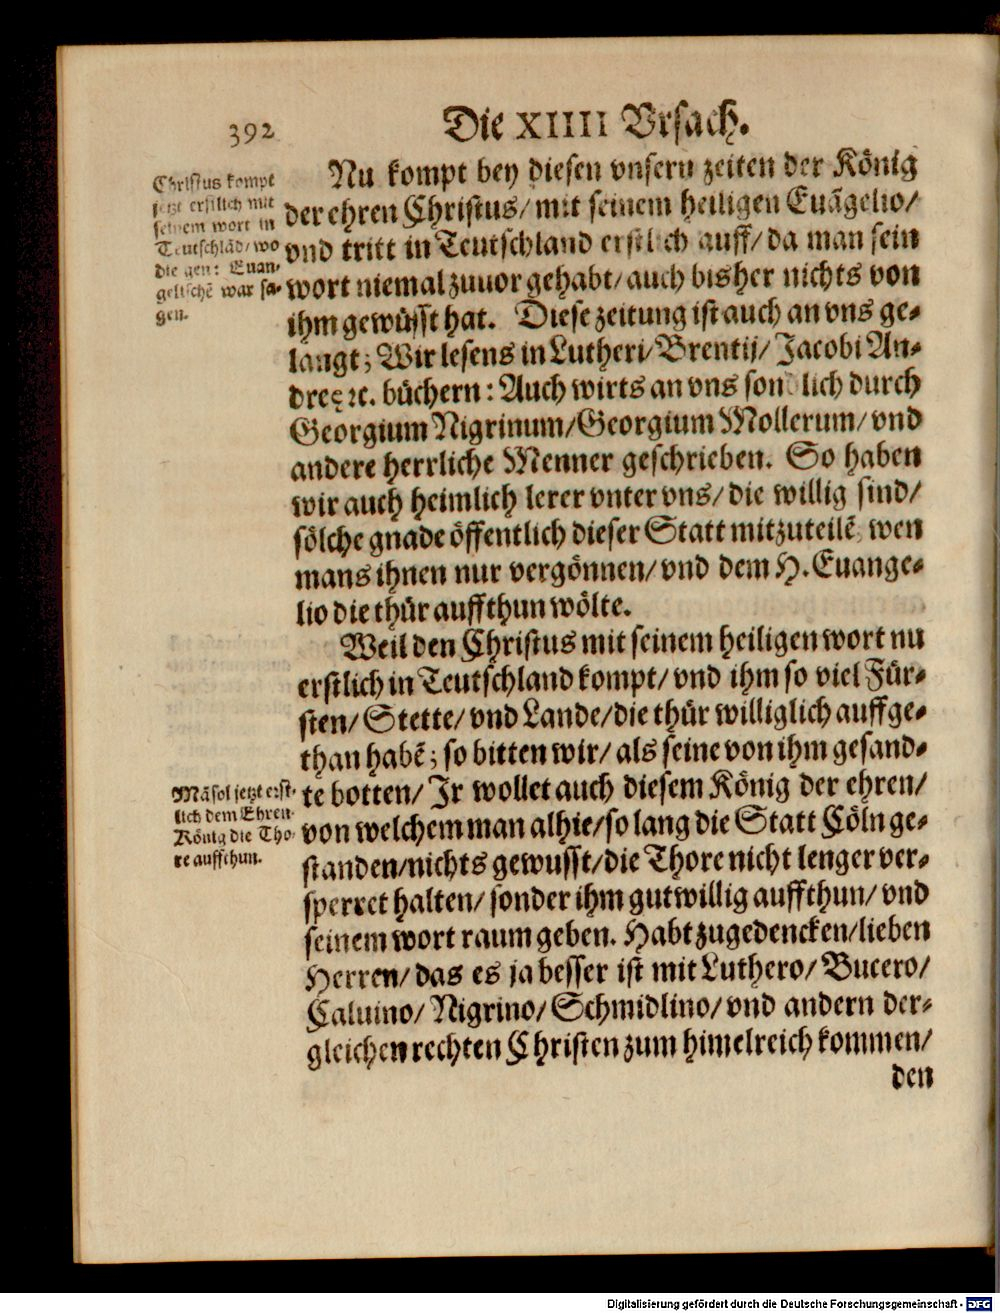 392
Die XIIII Vrsach.
Christus kompt
jetzt erstlich mit
seinem wort in
Teutschlād/ wo
die gen: Euan-
gelischē war sa-
gen.
Nu kompt bey diesen vnsern zeiten der König
der ehren Christus/ mit seinem heiligen Euāgelio/
vnd tritt in Teutschland erstlich auff/ da man sein
wort niemal zuuor gehabt/ auch bisher nichts von
ihm gewüsst hat. Diese zeitung ist auch an vns ge-
langt; Wir lesens in Lutheri/ Brentij/ Jacobi An-
dreę ꝛc. büchern: Auch wirts an vns lich durch
Georgium Nigrinum/ Georgium Mollerum/ vnd
andere herrliche Menner geschrieben. So haben
wir auch heimlich lerer vnter vns/ die willig sind/
sölche gnade öffentlich dieser Statt mitzuteilē wen
mans ihnen nur vergönnen/ vnd dem H. Euange-
lio die thür auffthun wölte.
Weil den Christus mit seinem heiligen wort nu
erstlich in Teutschland kompt/ vnd ihm so viel Für-
sten/ Stette/ vnd Lande/ die thür williglich auffge-
than habē; so bitten wir/ als seine von ihm gesand-
Mā sol jetzt erst-
lich dem Ehren
König die Tho-
re auffthun.
te botten/ Jr wollet auch diesem König der ehren/
von welchem man alhie/ so lang die Statt Cöln ge-
standen/ nichts gewusst/ die Thore nicht lenger ver-
sperret halten/ sonder ihm gutwillig auffthun/ vnd
seinem wort raum geben. Habt zugedencken/ lieben
Herren/ das es ja besser ist mit Luthero/ Bucero/
Caluino/ Nigrino/ Schmidlino/ vnd andern der-
gleichen rechten Christen zum himelreich kommen/
den
Digitalisierung gefördert durch die Deutsche Forschungsgemeinschaft - DFG